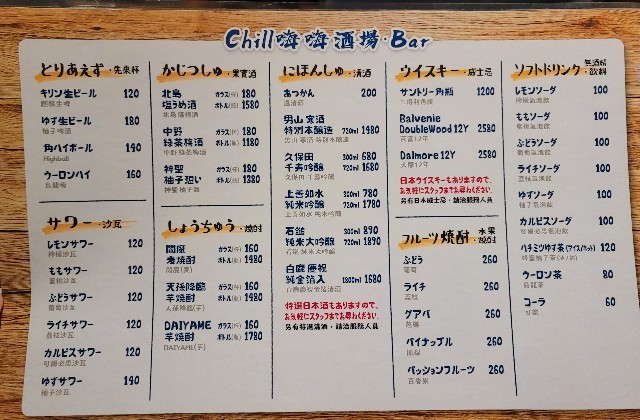 Chill嗨嗨酒場·Bar
とりあえず·先來杯
キリン生ビール 120
麒麟生啤
ゆず生ビール 180
柚子啤酒
角ハイボール 190
Highball
ウーロンハイ 160
烏龍燒
サワー·沙瓦
レモンサワー 120
檸檬沙瓦
ももサワー 120
蜜桃沙瓦
ぶどうサワー 120
葡萄沙瓦
ライチサワー 120
荔枝沙瓦
カルピスサワー 120
可爾必思沙瓦
ゆずサワー 190
柚子沙瓦
かじつしゅ·果實酒
北島 ガラス(杯) 180
塩うめ酒 ボトル(瓶) 1580
中野 ガラス(杯) 180
緑茶梅酒 ボトル(瓶) 1180
中野 綠茶梅酒
神聖 ガラス(杯) 180
柚子憩い ボトル(瓶) 1380
神聖 柚子酒
しょうちゅう·燒酎
閻魔 ガラス(杯) 160
麦焼酎 ボトル(瓶) 1980
閻魔(麥)
天孫降臨 ガラス(杯) 160
芋焼酎 ボトル(瓶) 1980
天孫降臨(芋)
DAIYAME ガラス(杯) 160
芋焼酎 ボトル(瓶) 1780
DAIYAME(芋)
にほんしゅ·清酒
あつかん 200
溫清酒
男山 寒酒
特別本醸造 720ml 1980
男山 寒酒 特別本釀造
久保田 300ml 680
千寿吟醸 720ml 1680
久保田 千壽吟釀
上善如水 300ml 780
純米吟醸 720ml 1780
上善如水 純米吟釀
石鎚 300ml 890
純米大吟醸 720ml 1890
石鎚 純米大吟釀
白鹿 慶祝
純金箔入 1800ml 1680
特選日本酒もありますので、
お気軽にスタッフまでお尋ねください。
另有特選清酒，請洽服務人員
ウイスキー·威士忌
サントリー角瓶 1200
三得利角瓶
Balvenie
DoubleWood 12Y 2580
百富12年
Dalmore 12Y 2580
大摩12年
日本ウイスキーもありますので、
お気軽にスタッフまでお尋ねください。
另有日本威士忌，請洽服務人員
フルーツ焼酎·水果燒酎
ぶどう 260
葡萄
ライチ 260
荔枝
グアバ 260
芭樂
パイナップル 260
鳳梨
パッションフルーツ 260
百香果
ソフトドリンク·無酒精飲料
レモンソーダ 100
檸檬氣泡飲
ももソーダ 100
蜜桃氣泡飲
ぶどうソーダ 100
葡萄氣泡飲
ライチソーダ 100
荔枝氣泡飲
ゆずソーダ 100
柚子氣泡飲
カルピスソーダ 100
可爾必思氣泡飲
ハチミツゆず茶(アイス/ホット) 120
蜂蜜柚子茶(冰/熱)
ウーロン茶 80
烏龍茶
コーラ 60
可樂